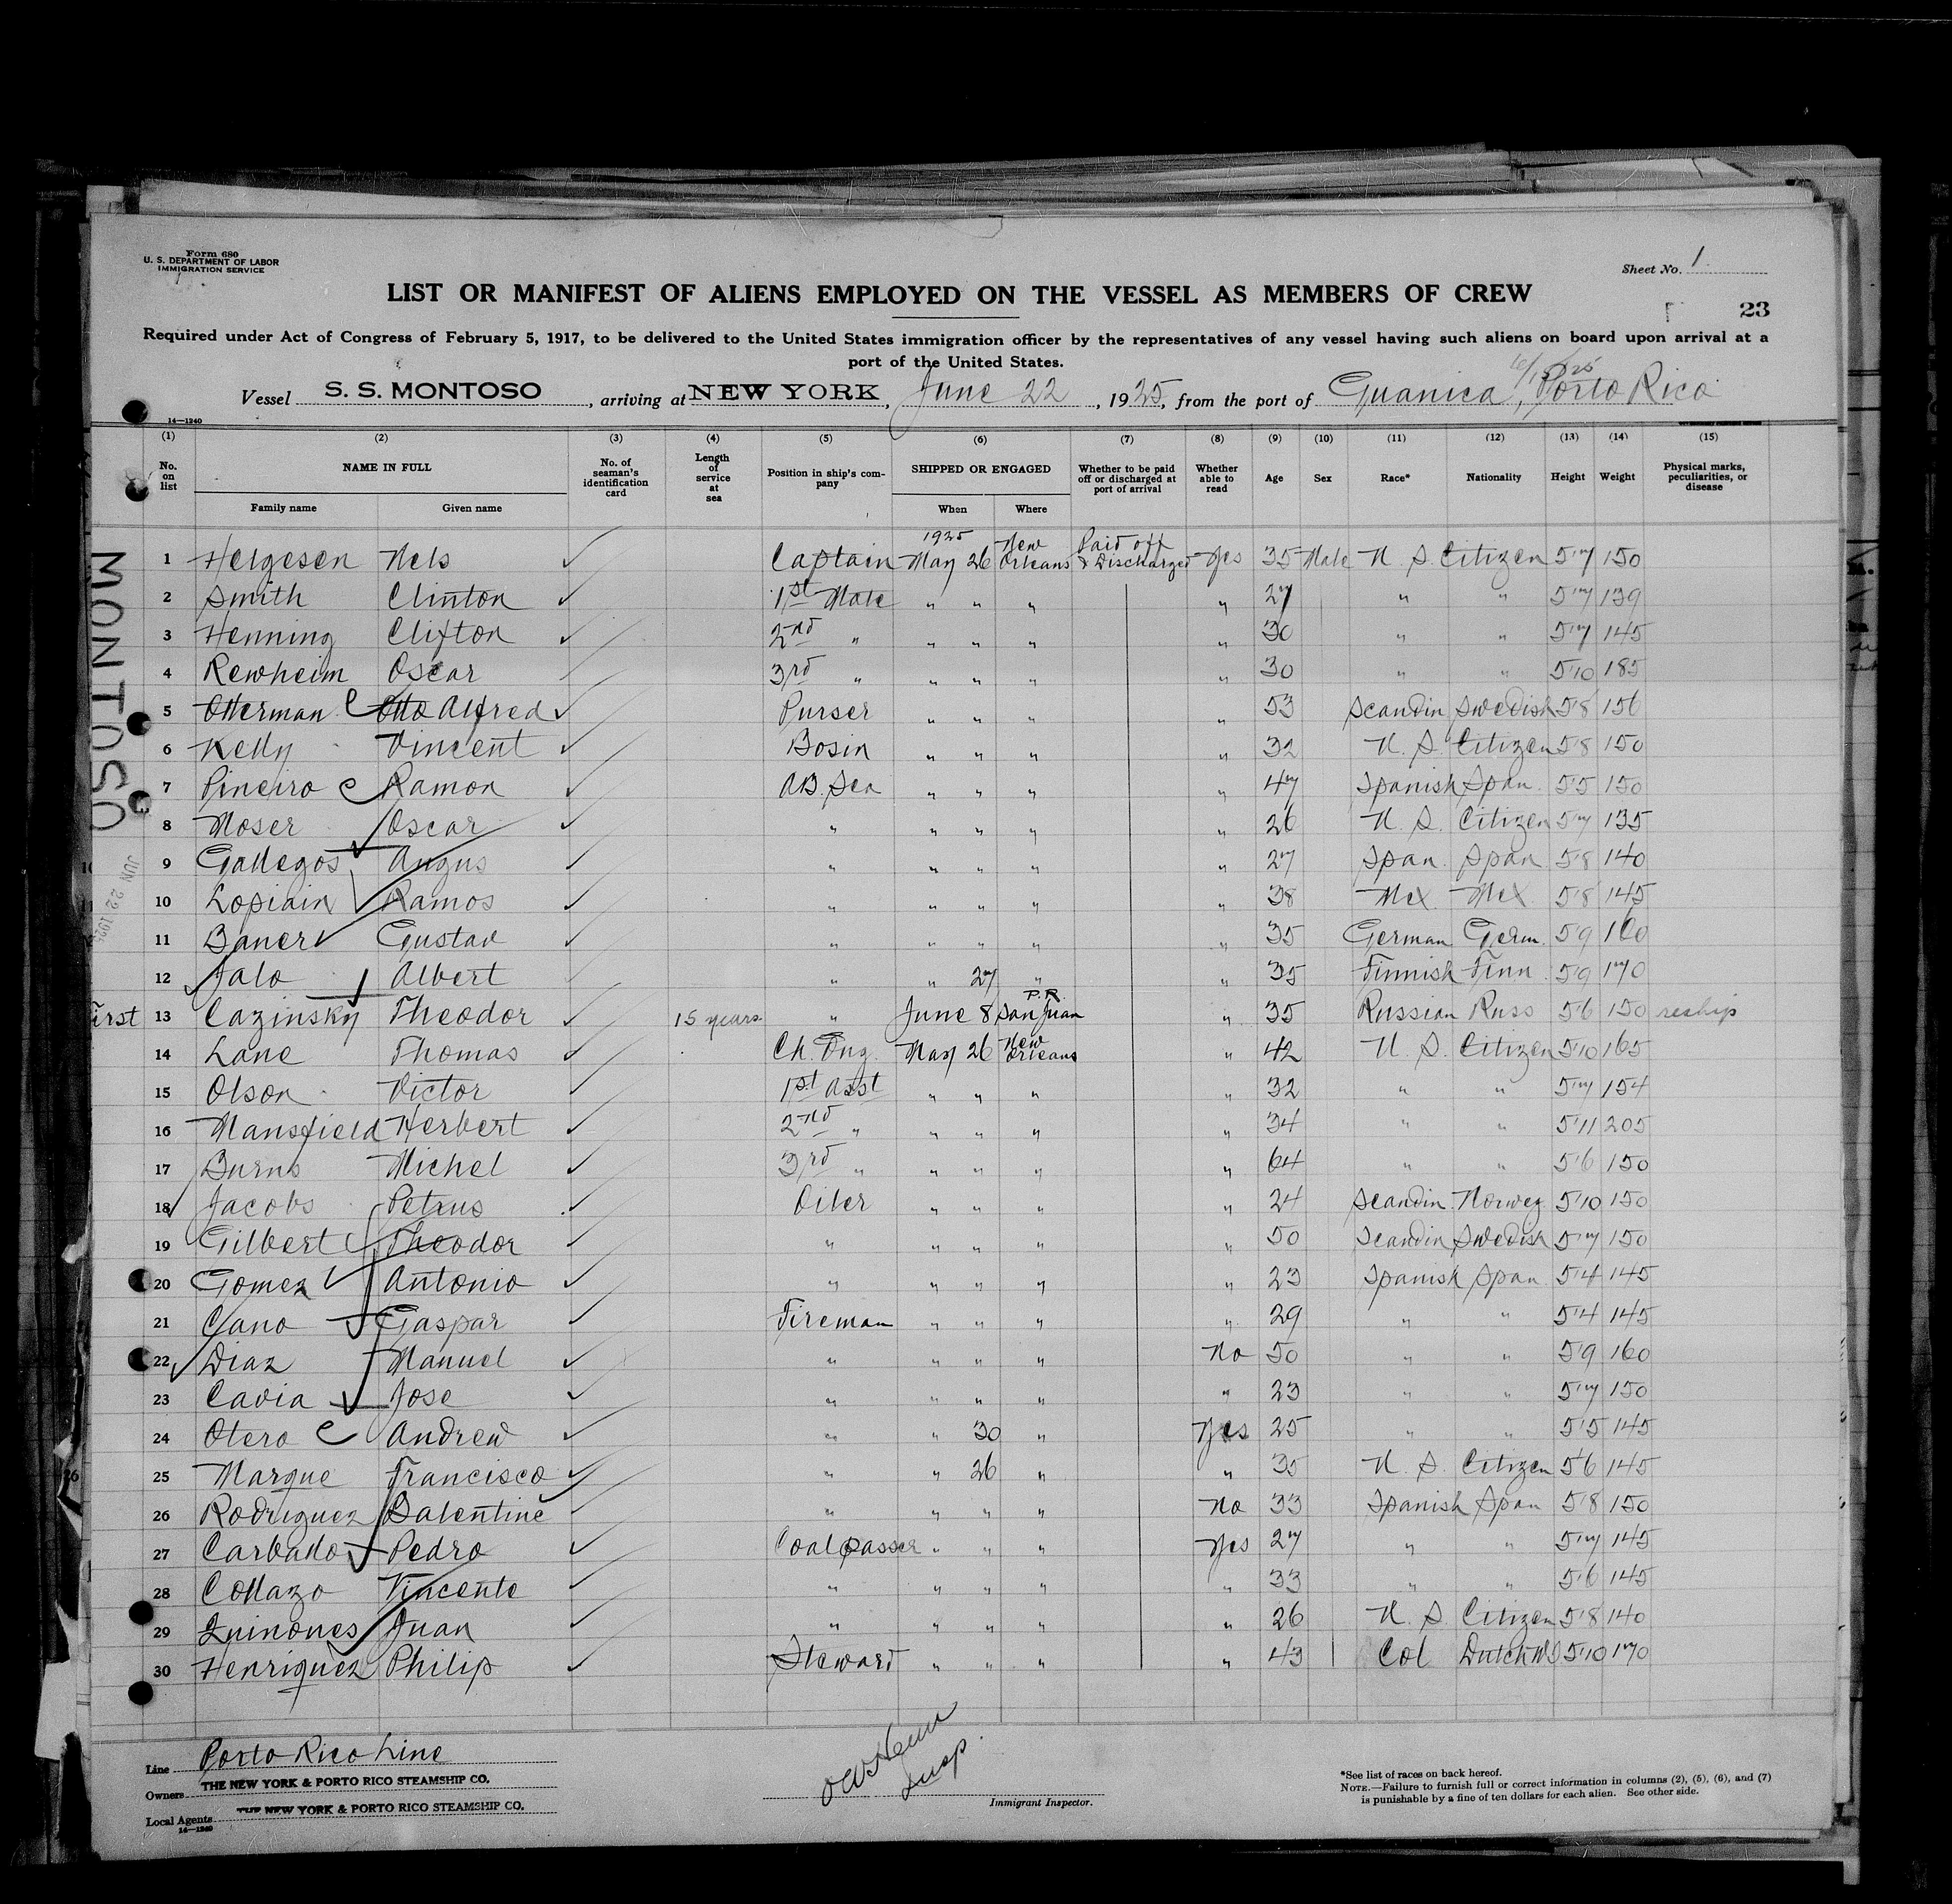 Form 680
U. S. DEPARTMENT OF LABOR
IMMIGRATION SERVICE
Sheet No. 1
LIST OR MANIFEST OF ALIENS EMPLOYED ON THE VESSEL AS MEMBERS OF CREW
23
Required under Act of Congress of February 5, 1917, to be delivered to the United States immigration officer by the representatives of any vessel having such aliens on board upon arrival at a
port of the United States.
Vessel S. S. MONTOSO, arriving at NEW YORK, June 22, 1925, from the port of Guanica, Porto Rico
14—1240
(1) (2) (3) (4) (5) (6) (7) (8) (9) (10) (11) (12) (13) (14) (15)
No. on list NAME IN FULL Family name Given name No. of seaman's identification card Length of service at sea Position in ship's company SHIPPED OR ENGAGED When Where Whether to be paid off or discharged at port of arrival Whether able to read Age Sex Race* Nationality Height Weight Physical marks, peculiarities, or disease
1 Helgesen Nels Captain 1925 May 26 New Orleans Paid off & Discharged Yes 35 Male U. S. Citizen 5'7 150
2 Smith Clinton 1st Mate " " " " 27 " " 5'7 139
3 Henning Clifton 2nd " " " " " 30 " " 5'7 145
4 Rewheim Oscar 3rd " " " " " 30 " " 5'10 185
5 Otterman Otto Alfred Purser " " " " 53 Scandin Swedish 5'8 156
6 Kelly Vincent Bosin " " " " 32 U. S. Citizen 5'8 150
7 Pineiro Ramon AB. Sea " " " " 47 Spanish Span. 5'5 150
8 Moser Oscar " " " " " 26 U. S. Citizen 5'7 135
9 Gallegos Angus " " " " " 27 Span. Span 5'8 140
10 Lopiain Ramos " " " " " 38 Mex. Mex 5'8 145
11 Baner Gustav " " " " " 35 German Germ. 5'9 160
12 Jalo Albert " " 27 " " 35 Finnish Finn. 5'9 170
First 13 Cazinsky Theodor 15 years " June 8 San Juan P.R. " 35 Russian Russ 5'6 150 reship
14 Lane Thomas Ch. Eng. May 26 New Orleans " 42 U. S. Citizen 5'10 165
15 Olson Victor 1st Asst " " " " 32 " " 5'7 154
16 Mansfield Herbert 2nd " " " " " 34 " " 5'11 205
17 Burns Michel 3rd " " " " " 64 " " 5'6 150
18 Jacobs Petrus Oiler " " " " 24 Scandin. Norweg. 5'10 150
19 Gilbert Theodor " " " " " 50 Scandin Swedish 5'7 150
20 Gomez Antonio " " " " " 23 Spanish Span 5'4 145
21 Cano Gaspar Fireman " " " " 29 " " 5'4 145
22 Diaz Manuel " " " " No 50 " " 5'9 160
23 Cavia Jose " " " " " 23 " " 5'7 150
24 Otero Andrew " " 30 " Yes 25 " " 5'5 145
25 Marque Francisco " " 26 " " 35 U. S. Citizen 5'6 145
26 Rodriguez Balentine " " " " No 33 Spanish Span 5'8 150
27 Carballo Pedro Coal passer " " " Yes 27 " " 5'7 145
28 Collazo Vincente " " " " " 33 " " 5'6 145
29 Quinones Juan " " " " " 26 U. S. Citizen 5'8 140
30 Henriquez Philip Steward " " " " 43 Col Dutch W I 5'10 170
MONTOSO
JUN 22 1925
Line Porto Rico Line
Owners THE NEW YORK & PORTO RICO STEAMSHIP CO.
Local Agents THE NEW YORK & PORTO RICO STEAMSHIP CO.
14—1240
Insp.
Immigrant Inspector.
*See list of races on back hereof.
NOTE.—Failure to furnish full or correct information in columns (2), (5), (6), and (7)
is punishable by a fine of ten dollars for each alien. See other side.